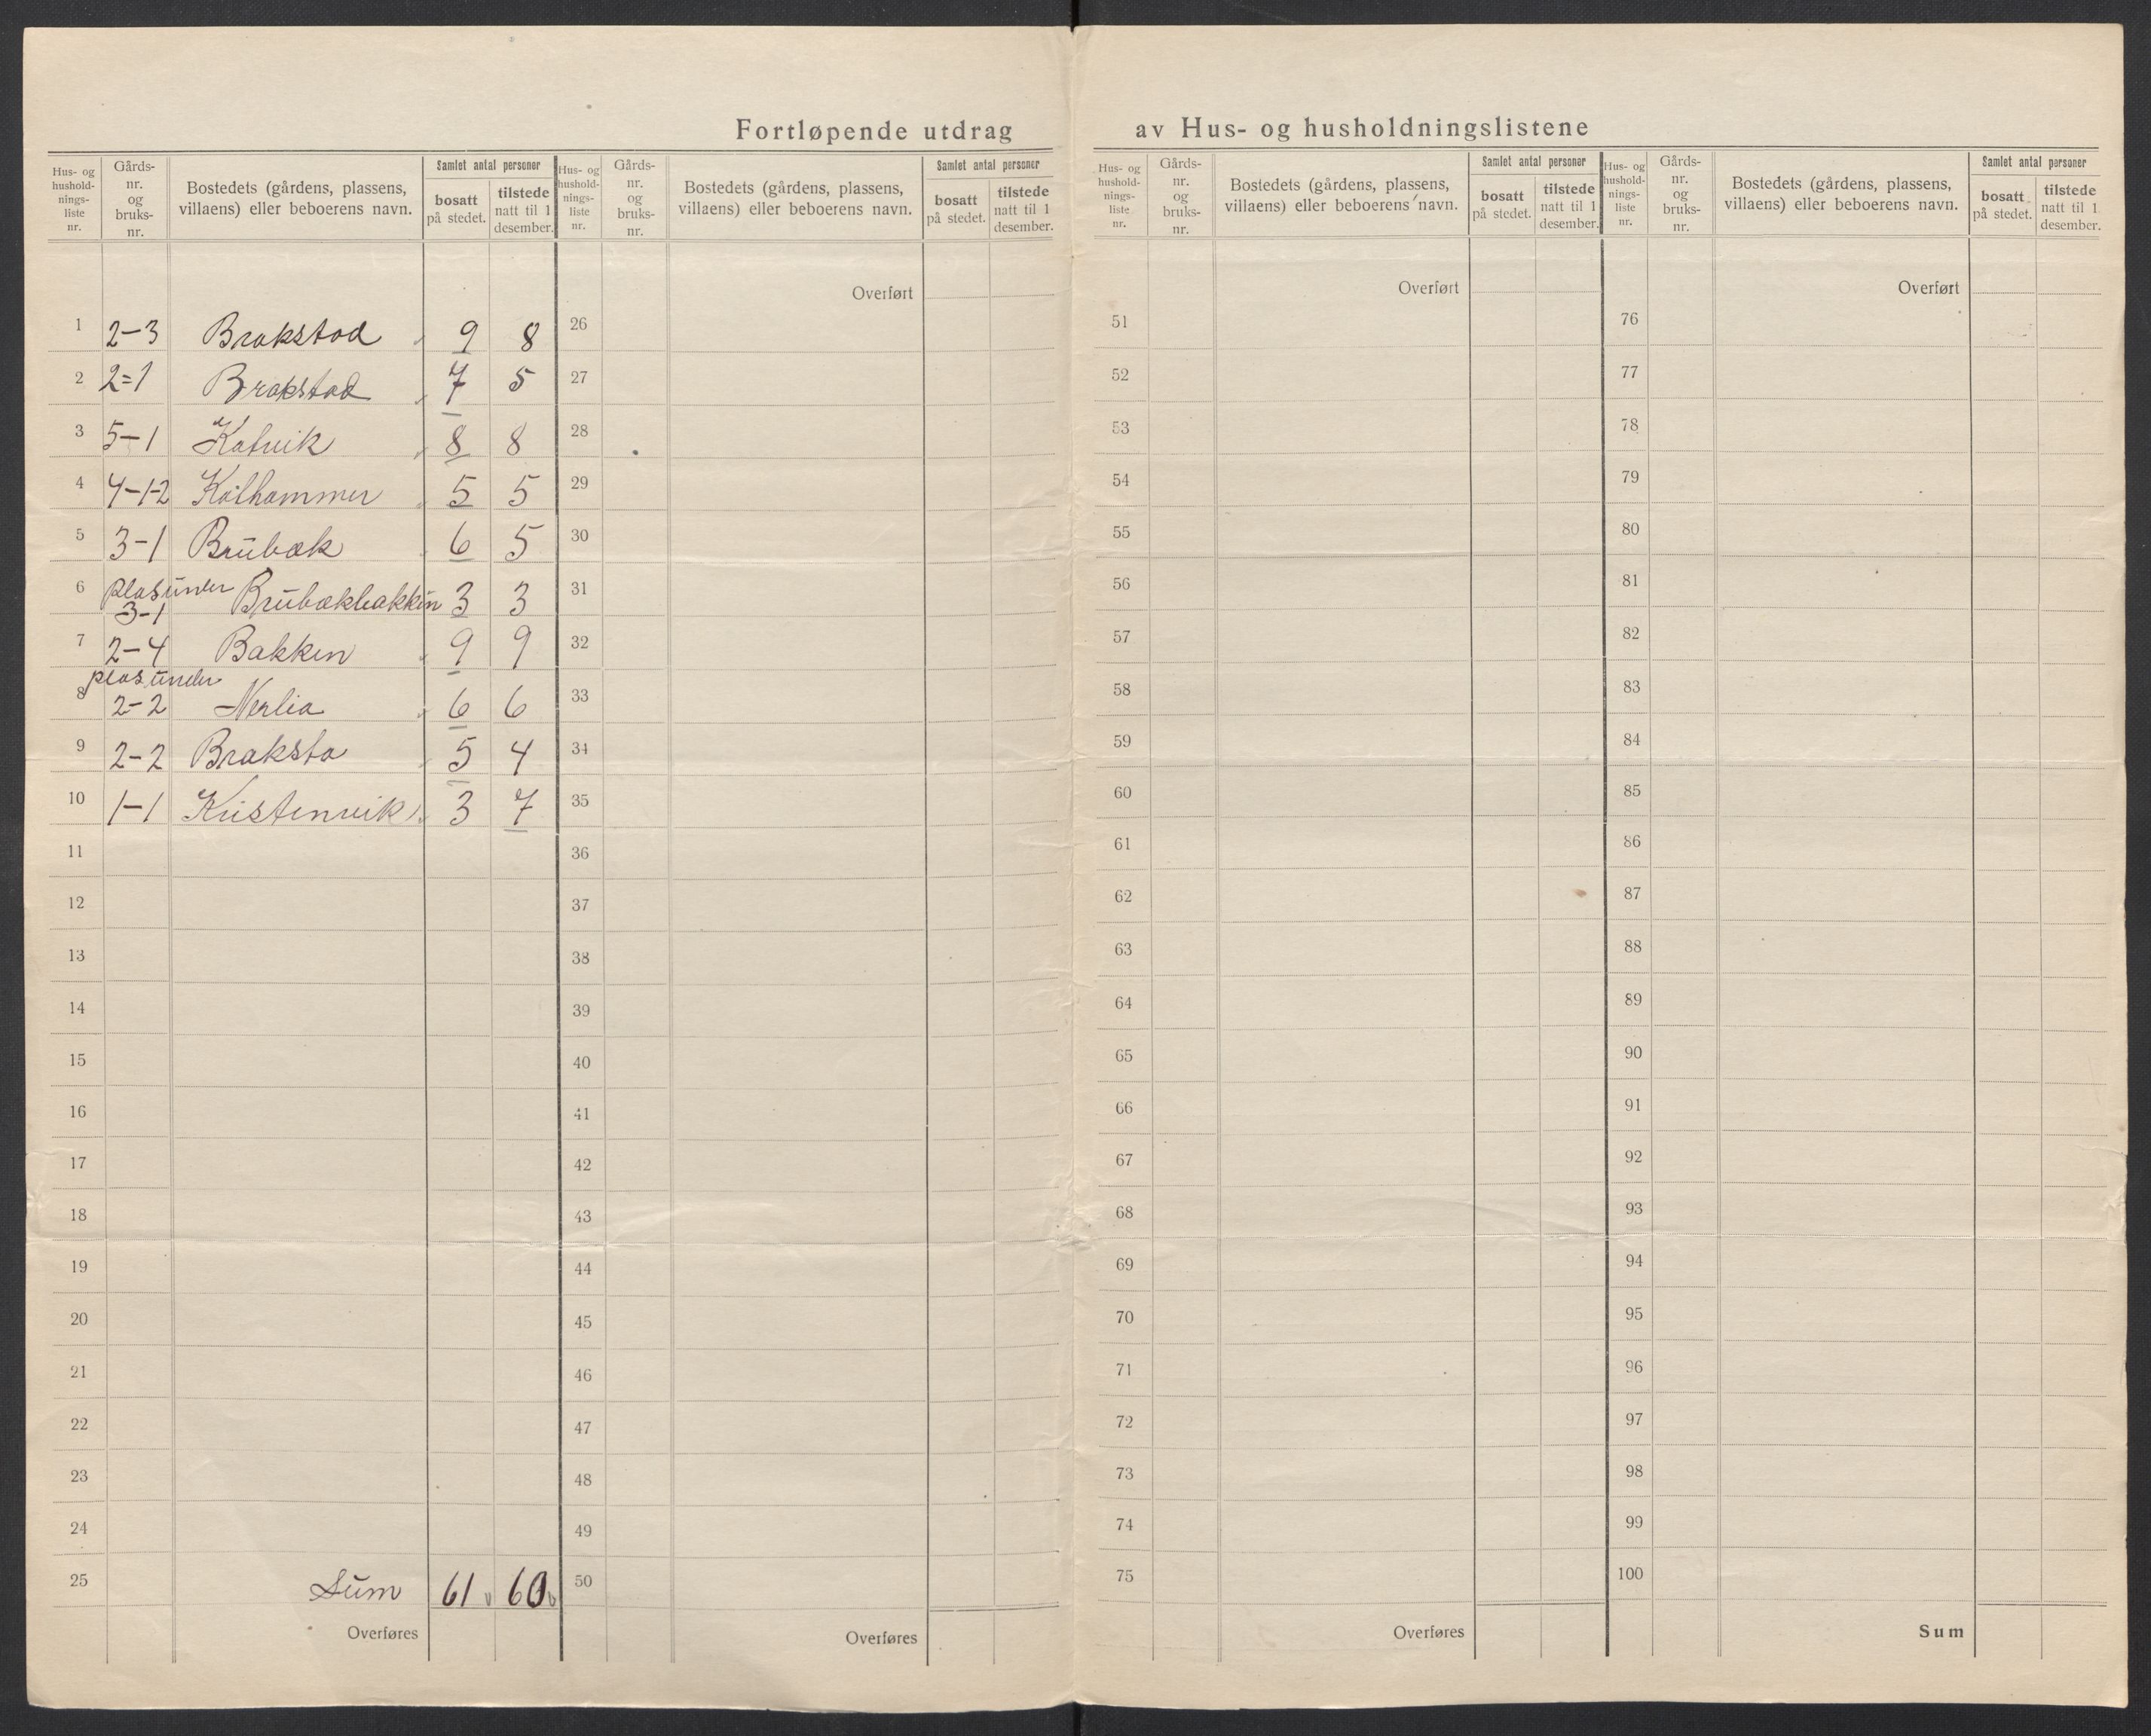 Fortløpende utdrag av Hus- og husholdningslistene
Hus- og hushold- nings- liste nr. | Gårds- nr. og bruks- nr. | Bostedets (gårdens, plassens, villaens) eller beboerens navn. | Samlet antal personer | bosatt på stedet. | tilstede natt til 1 desember.
Hus- og hushold- nings- liste nr. | Gårds- nr. og bruks- nr. | Bostedets (gårdens, plassens, villaens) eller beboerens navn. | Samlet antal personer | bosatt på stedet. | tilstede natt til 1 desember.
Hus- og hushold- nings- liste nr. | Gårds- nr. og bruks- nr. | Bostedets (gårdens, plassens, villaens) eller beboerens navn. | Samlet antal personer | bosatt på stedet. | tilstede natt til 1 desember.
Hus- og hushold- nings- liste nr. | Gårds- nr. og bruks- nr. | Bostedets (gårdens, plassens, villaens) eller beboerens navn. | Samlet antal personer | bosatt på stedet. | tilstede natt til 1 desember.
1 2-3 Brakstad 9 8
2 2=1 Brakstad 7 5
3 5-1 Katvik 8 8
4 4-1-2 Kolhammer 5 5
5 3-1 Brubæk 6 5
6 plas under 3-1 Brubækbakken 3 3
7 2-4 Bakken 9 9
8 plas under 2-2 Nerlia 6 6
9 2-2 Braksta 5 4
10 1-1 Kristenvik 3 7
11
12
13
14
15
16
17
18
19
20
21
22
23
24
25 Sum 61 60
Overføres
Overført
26
27
28
29
30
31
32
33
34
35
36
37
38
39
40
41
42
43
44
45
46
47
48
49
50
Overføres
Overført
51
52
53
54
55
56
57
58
59
60
61
62
63
64
65
66
67
68
69
70
71
72
73
74
75
Overføres
Overført
76
77
78
79
80
81
82
83
84
85
86
87
88
89
90
91
92
93
94
95
96
97
98
99
100
Sum